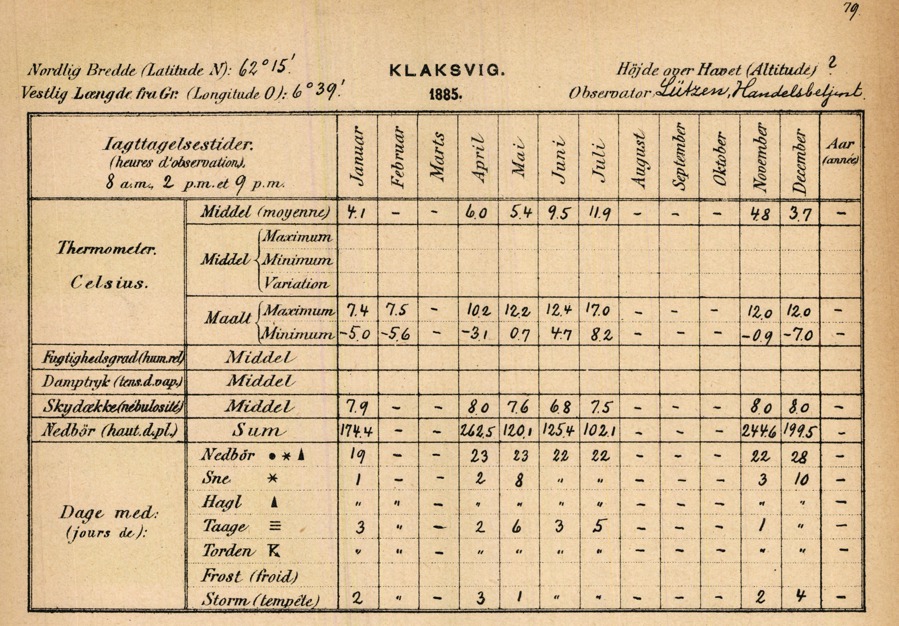 79.
Nordlig Bredde (Latitude N): 62° 15'. KLAKSVIG. Höjde over Havet (Altitude) ?
Vestlig Længde fra Gr. (Longitude O): 6° 39'. 1885. Observator Lützen, Handelsbetjent.
Iagttagelsestider. (heures d'observation), 8 a.m., 2 p.m. et 9 p.m. Januar Februar Marts April Mai Juni Juli August September Oktober November December Aar (année)
Thermometer. Celsius.
Middel (moyenne) 4.1 – – 6.0 5.4 9.5 11.9 – – – 4.8 3.7 –
Middel { Maximum
Minimum
Variation
Maalt { Maximum 7.4 7.5 – 10.2 12.2 12.4 17.0 – – – 12.0 12.0 –
Minimum –5.0 –5.6 – –3.1 0.7 4.7 8.2 – – – –0.9 –7.0 –
Fugtighedsgrad (hum. rel) Middel
Damptryk (tens. d. vap.) Middel
Skydække (nébulosité) Middel 7.9 – – 8.0 7.6 6.8 7.5 – – – 8.0 8.0 –
Nedbör (haut. d. pl.) Sum 174.4 – – 262.5 120.1 125.4 102.1 – – – 244.6 199.5 –
Dage med: (jours de):
Nedbör ● * ▲ 19 – – 23 23 22 22 – – – 22 28 –
Sne * 1 – – 2 8 " " – – – 3 10 –
Hagl ▲ " " – " " " " – – – " " –
Taage ≡ 3 " – 2 6 3 5 – – – 1 " –
Torden " " – " " " " – – – " " –
Frost (froid)
Storm (tempête) 2 " – 3 1 " " – – – 2 4 –